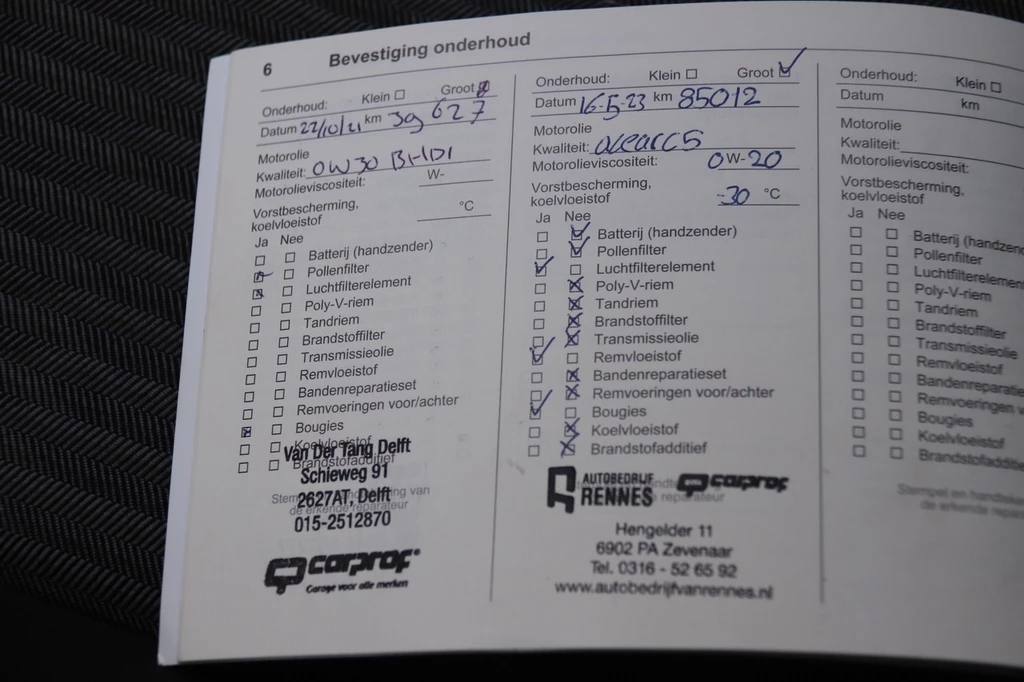 6
Bevestiging onderhoud
Onderhoud: Klein Groot
Datum 22/10/21 km 39 627
Motorolie
Kwaliteit: 0W30 BHDI
Motorolieviscositeit: W-
Vorstbescherming,
koelvloeistof °C
Ja Nee
Batterij (handzender)
Pollenfilter
Luchtfilterelement
Poly-V-riem
Tandriem
Brandstoffilter
Transmissieolie
Remvloeistof
Bandenreparatieset
Remvoeringen voor/achter
Bougies
Koelvloeistof
Brandstofadditief
Van Der Tang Delft
Schieweg 91
2627AT, Delft
015-2512870
de erkende reparateur
carprof
Garage voor alle merken
Onderhoud: Klein Groot
Datum 16-5-23 km 85012
Motorolie
Kwaliteit:
Motorolieviscositeit: 0W-20
Vorstbescherming,
koelvloeistof -30 °C
Ja Nee
Batterij (handzender)
Pollenfilter
Luchtfilterelement
Poly-V-riem
Tandriem
Brandstoffilter
Transmissieolie
Remvloeistof
Bandenreparatieset
Remvoeringen voor/achter
Bougies
Koelvloeistof
Brandstofadditief
AUTOBEDRIJF
RENNES
carprof
reparateur
Hengelder 11
6902 PA Zevenaar
Tel. 0316 - 52 65 92
www.autobedrijfvanrennes.nl
Onderhoud: Klein
Datum km
Motorolie
Kwaliteit:
Motorolieviscositeit:
Vorstbescherming,
koelvloeistof
Ja Nee
Batterij (handzen
Pollenfilter
Luchtfilterelemen
Poly-V-riem
Tandriem
Brandstoffilter
Transmissieolie
Remvloeistof
Bandenreparatie
Remvoeringen v
Bougies
Koelvloeistof
Brandstofadditi
Stempel en handteke
de erkende repara